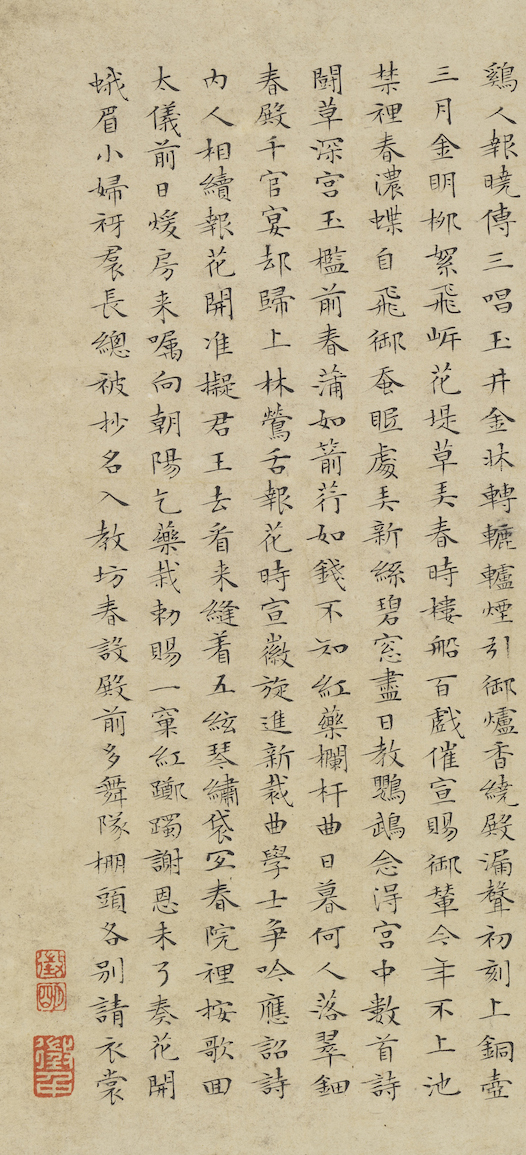 鷄人報曉傳三唱玉井金牀轉轆轤煙引御爐香繞殿漏聲初刻上銅壺
三月金明柳絮飛岸花堤草弄春時樓船百戲催宣賜御輦今年不上池
禁裡春濃蝶自飛御蚕眠處弄新絲碧窓盡日教鸚鵡念得宮中數首詩
鬪草深宮玉檻前春蒲如箭荇如錢不知紅藥欄杆曲日暮何人落翠鈿
春殿千官宴却歸上林鶯舌報花時宣徽旋進新裁曲學士爭吟應詔詩
內人相續報花開准擬君王去看来縫着五絃琴繡袋宜春院裡按歌回
太儀前日煖房来囑向朝陽乞藥栽勅賜一窠紅躑躅謝恩未了奏花開
蛾眉小婦砑裠長總被抄名入教坊春設殿前多舞隊棚頭各別請衣裳
徵明